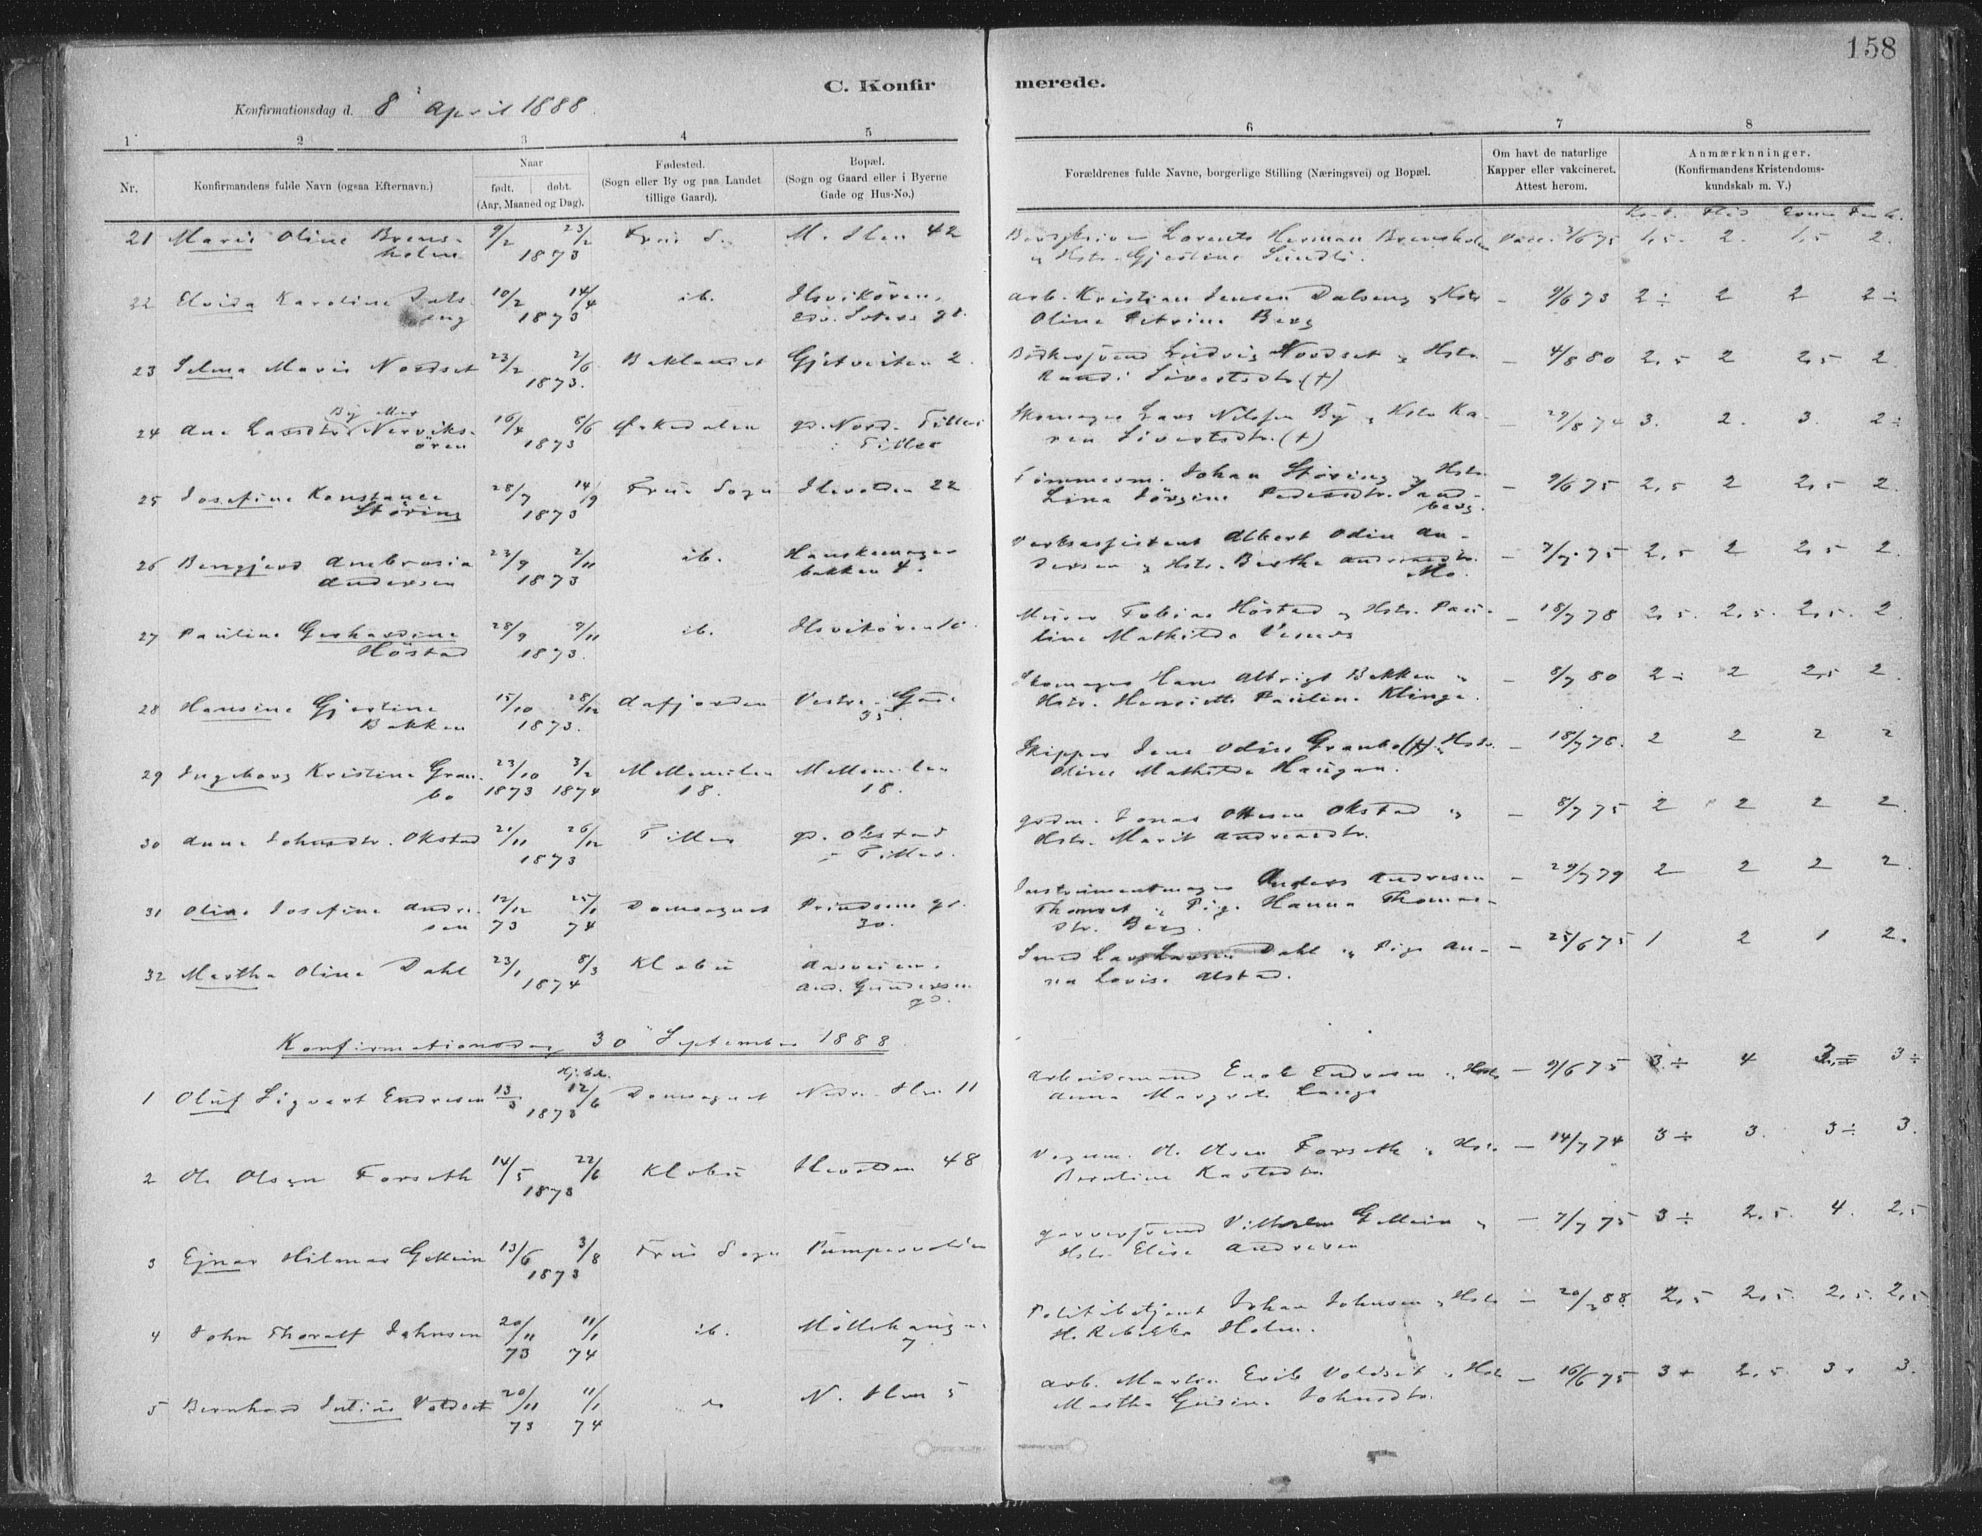 158
C. Konfirmerede.
Konfirmationsdag d. 8 April 1888.
1 2 3 4 5 6 7 8
Nr.
Konfirmandens fulde Navn (ogsaa Efternavn.)
Naar
født. døbt.
(Aar, Maaned og Dag).
Fødested.
(Sogn eller By og paa Landet
tillige Gaard).
Bopæl.
(Sogn og Gaard eller i Byerne
Gade og Hus-No.)
Forældrenes fulde Navne, borgerlige Stilling (Næringsvei) og Bopæl.
Om havt de naturlige
Kapper eller vakcineret.
Attest herom.
Anmærknninger.
(Konfirmandens Kristendoms-
kundskab m. V.)
21 Marie Oline Brens- 9/2 23/2 Frue S. N. Ilen 42 Lorents Herman Brensholm Vacc. 3/6 75 1,5. 2. 1,5 2.
holm 1873 Hstr. Gjertine Sundli.
22 Elvida Karoline Dals- 10/2 14/4 ib. Ilsvikören, Arb. Kristian Jensen Dalseng Hstr — 9/6 73 2÷ 2 2 2÷
eng 1873 Oline Petrine Berg
23 Selma Marie Nordset 23/2 2/6 Baklandet Gjetveiten 2. Ludvig Nordset Hstr. — 4/8 80 2,5 2 2,5 2
1873. Randi Sivertsdtr. (+)
By eller
24 Ane Larsdtr. Nerviks- 16/4 8/6 Ørkedalen gd. Nord. Tiller Skomager Lars Nilsen By Hstr Ka- — 29/8 74 3. 2. 3. 2÷
ören 1873 i Tiller ren Sivertsdtr. (+)
25 Josefine Konstance 28/7 14/9 Frue Sogn Ilevolden 22 Tömmerm. Johan Støring Hstr. — 9/6 75 2,5 2 2,5 2.
Støring 1873 Lina Jörgine Pedersdtr. Sand-
berg.
26 Bengjerd Ambrosia 23/9 2/11 ib. Hanskemager Albert Odin An- — 7/7 75 2,5 2 2,5 2.
Andersen 1873 bakken 4. dersen Hstr. Berthe Andreasdtr.
Mo.
27 Pauline Gerhardine 28/9 9/11 ib. Murer Tobias Höstad Hstr. Pau- — 18/7 78 2,5. 2,5. 2,5. 2
Höstad 1873. line Mathilde
28 Hansine Gjertine 15/10 28/12 Aafjorden Skomager Hans Albrigt Bakken — 8/7 80 2÷ 2 2,5 2.
Bakken 1873. 35. Hstr. Henriette Pauline Klinge.
29 Ingeborg Kristine Gran- 23/10 3/2 Mellemilen Mellemilen Skipper Jens Odin Granbo (+) Hstr. — 18/7 78. 2 2 2 2
bo 1873 1874 18. 18. Oline Mathilde Haugan.
30 Anne Johnsdtr. Okstad 21/11 26/12 Tiller gd. Okstad gdm. Jonas Ottesen Okstad — 8/7 75 2 2 2 2.
1873 i Tiller. Hstr. Marit Andreasdtr.
31 Oline Josefine Andre- 12/12 25/1 Domsognet Prindsens gd. Instrumentmager Anders Andresen — 29/7 79 2 2 2 2.
sen 73 74 30. Pige Hanna Thomas-
dtr. Berg.
32 Martha Oline Dahl 23/1 8/3 Klæbu Aasveien. Smed Lars Larsen Dahl Pige An- — 25/6 75 1 2 1 2.
1874 And. Gundersen na Lovise Ulstad.
gd.
Konfirmationsdag 30 September 1888
Hj. db.
1 Oluf Sigvart Endresen 13/3 12/6 Domsognet Nedre Ilen 11 Arbeidsmand Endresen Hstr — 9/6 75 3÷ 4 3 3÷
1873 Anna Margrete Lange
2 Ole Olsen Forseth 14/5 22/6 Klæbu Ilevolden 48 Ole Olsen Forseth Hstr. — 14/7 74 3÷ 3. 3÷ 3.
1873 Berntine
3 Ejnar Hilmar Gellein 13/6 3/8 Frue Sogn Garversvend Vilhelm Gellein — 7/7 75 3÷ 2,5. 4. 2,5
1873 Hstr. Elise Andresen
4 John Thoralf Johnsen 20/11 11/1 ib. Politibetjent Johan Johnsen Hstr — 88. 2,5 2,5. 2,5. 2,5
73 74 7 H. Rebekka Holm.
5 Bernhard Julius Voldset 20/11 11/1 N. Ilen 5 Arb. Martin Erik Voldset Hstr — 16/6 75 3+ 2,5 3+ 3.
73 74 Martha Johnsdtr.